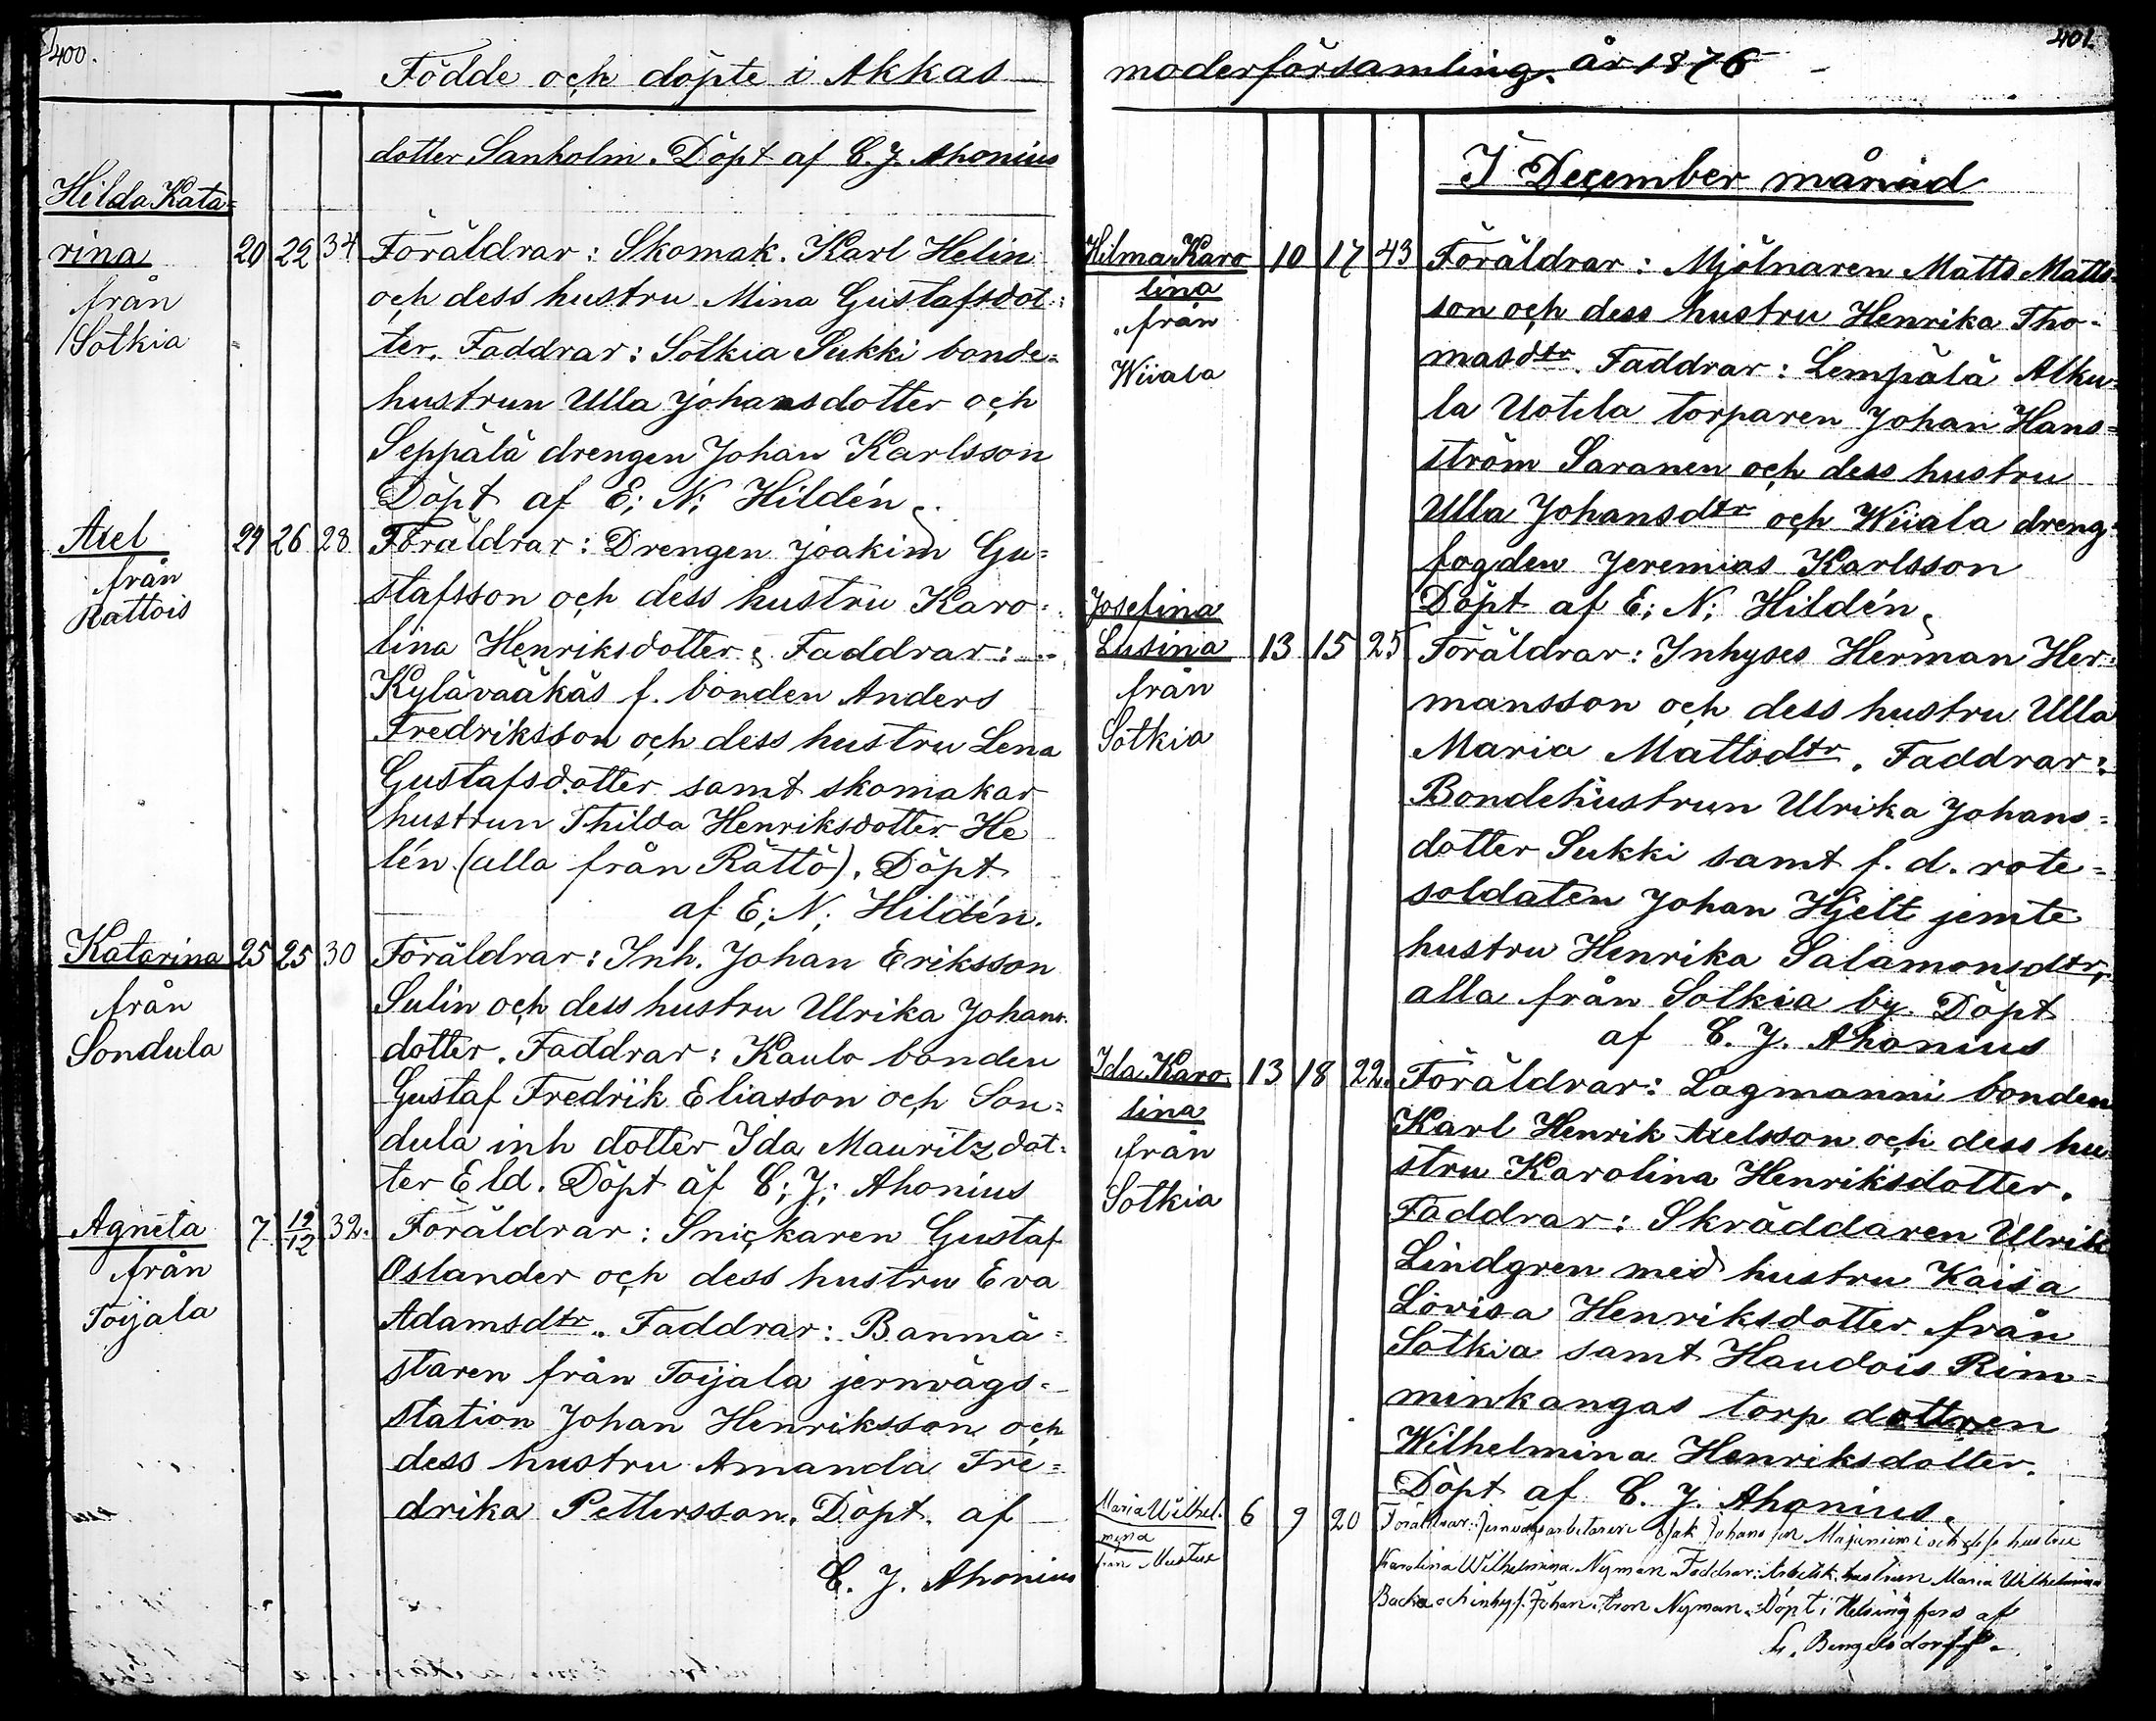 400.
Födde och döpte i Akkas
dotter Sanholm. Döpt af C. J. Ahonius
Hilda Kata=
rina 20 22 34 Föräldrar: Skomak. Karl Helin
från och dess hustru Mina Gustafsdot=
Sotkia ter. Faddrar: Sotkia Sukki bonde=
hustrun Ulla Johansdotter och
Seppälä drengen Johan Karlsson
Döpt af E; N; Hildén.
Axel 24 26 28 Föräldrar: Drengen Joakim Gu=
från stafsson och dess hustru Karo=
Rattois lina Henriksdotter. Faddrar:
Kylävaäkäs f. bonden Anders
Fredriksson och dess hustru Lena
Gustafsdotter samt skomakar
hustrun Thilda Henriksdotter He
lén (alla från Rättö). Döpt
af E; N. Hildén.
Katarina 25 25 30 Föräldrar: Inh. Johan Eriksson
från Sulin och dess hustru Ulrika Johans=
Sondula dotter. Faddrar: Kaulo bonden
Gustaf Fredrik Eliasson och Son=
dula inh dotter Ida Mauritzdot=
ter Eld. Döpt af C; J; Ahonius
Agneta 7 12/12 32. Föräldrar: Snickaren Gustaf
från Oslander och dess hustru Eva
Toijala Adamsdtr. Faddrar: Banmä=
staren från Toijala jernvägs=
station Johan Henriksson och
dess hustru Amanda Fre=
drika Pettersson. Döpt af
C. J. Ahonius
401.
moderförsamling. år 1876
I December månad
Hilma Karo 10 17 43 Föräldrar: Mjölnaren Matts Matts=
lina son och dess hustru Henrika Tho=
från masdtr. Faddrar: Lempälä Alku=
Wiiala la Uotila torparen Johan Hans=
ström Saranen och dess hustru
Ulla Johansdtr och Wiiala dreng=
fogden Jeremias Karlsson
Döpt af E; N; Hildén.
Josefina
Lusina 13 15 25 Föräldrar: Inhyses Herman Her=
från mansson och dess hustru Ulla
Sotkia Maria Mattsdtr. Faddrar:
Bondehustrun Ulrika Johans=
dotter Sukki samt f. d. rote=
soldaten Johan Hjelt jemte
hustru Henrika Salamonsdtr,
alla från Sotkia by. Döpt
af C. J. Ahonius
Ida Karo 13 18 22. Föräldrar: Lagmanni bonden
lina Karl Henrik Axelsson och dess hu
från stru Karolina Henriksdotter.
Sotkia Faddrar: Skräddaren Ulrik
Lindgren med hustru Kaisa
Lovisa Henriksdotter från
Sotkia samt Haudois Rim=
minkangas torp dottren
Wilhelmina Henriksdotter.
Döpt af C. J. Ahonius.
Maria Wilhel. 6 9 20 Föräldrar: Jernvägsarbetaren och dess hustru
mina Karolina Wilhelmina Nyman. Faddrar: Arbetsk. hustrun Maria Wilhelmina
från Backa och inhys. Johan Nyman. Döpt i Helsingfors af
Bengelsdorff.